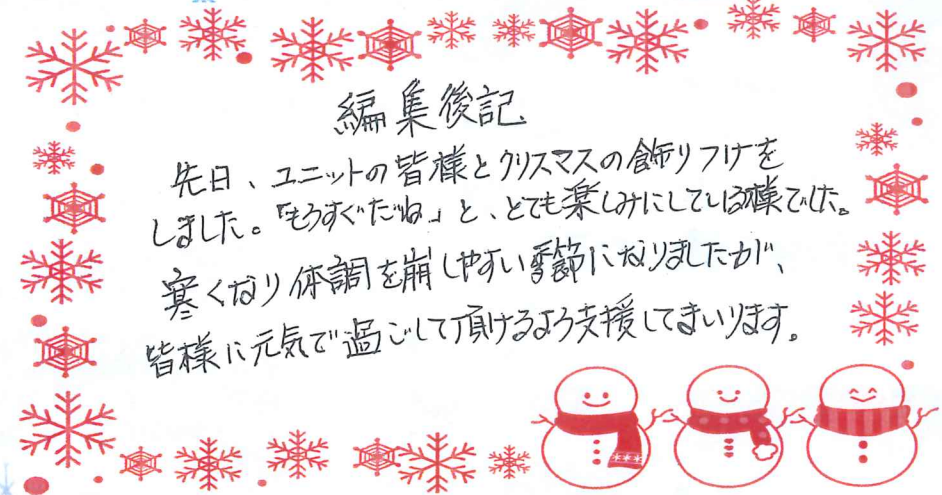 編集後記
先日、ユニットの皆様とクリスマスの飾りつけを
しました。「もうすぐだね」と、とても楽しみにしている様でした。
寒くなり体調を崩しやすい季節になりましたが、
皆様に元気で過ごして頂けるよう支援してまいります。